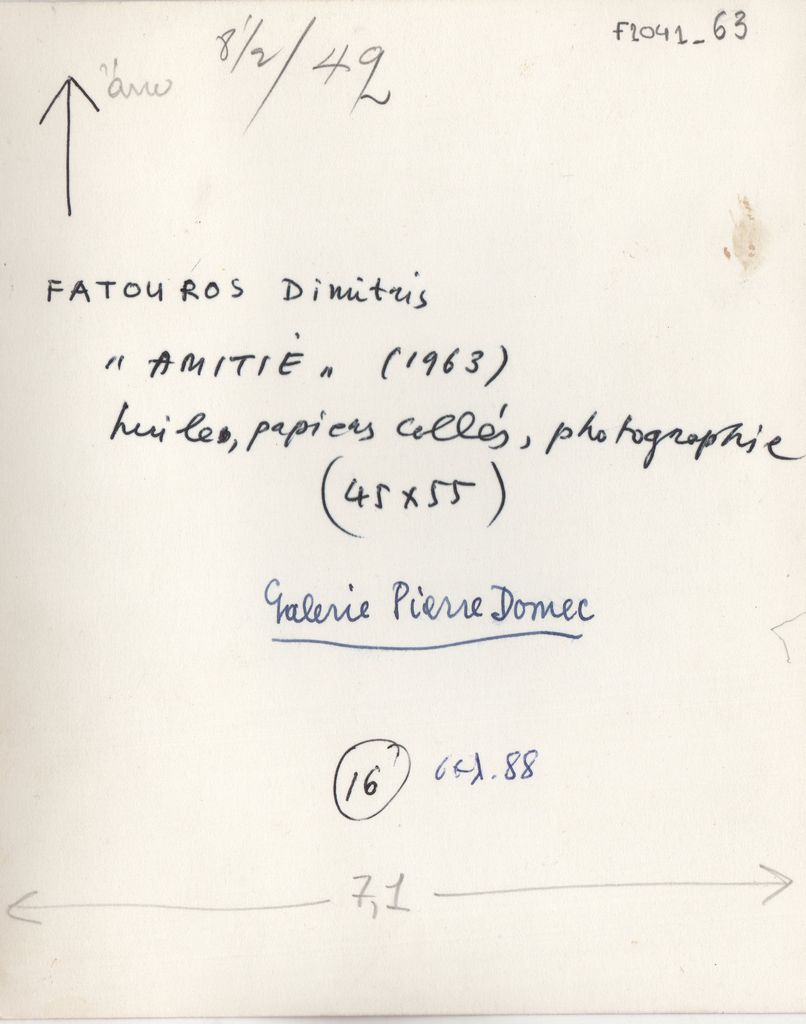 F1041_63
8 1/2 / 49
άνω
FATOUROS Dimitris
"AMITIÉ" (1963)
huiles, papiers collés, photographie
(45x55)
Galerie Pierre Domec
16 σελ. 88
7,1